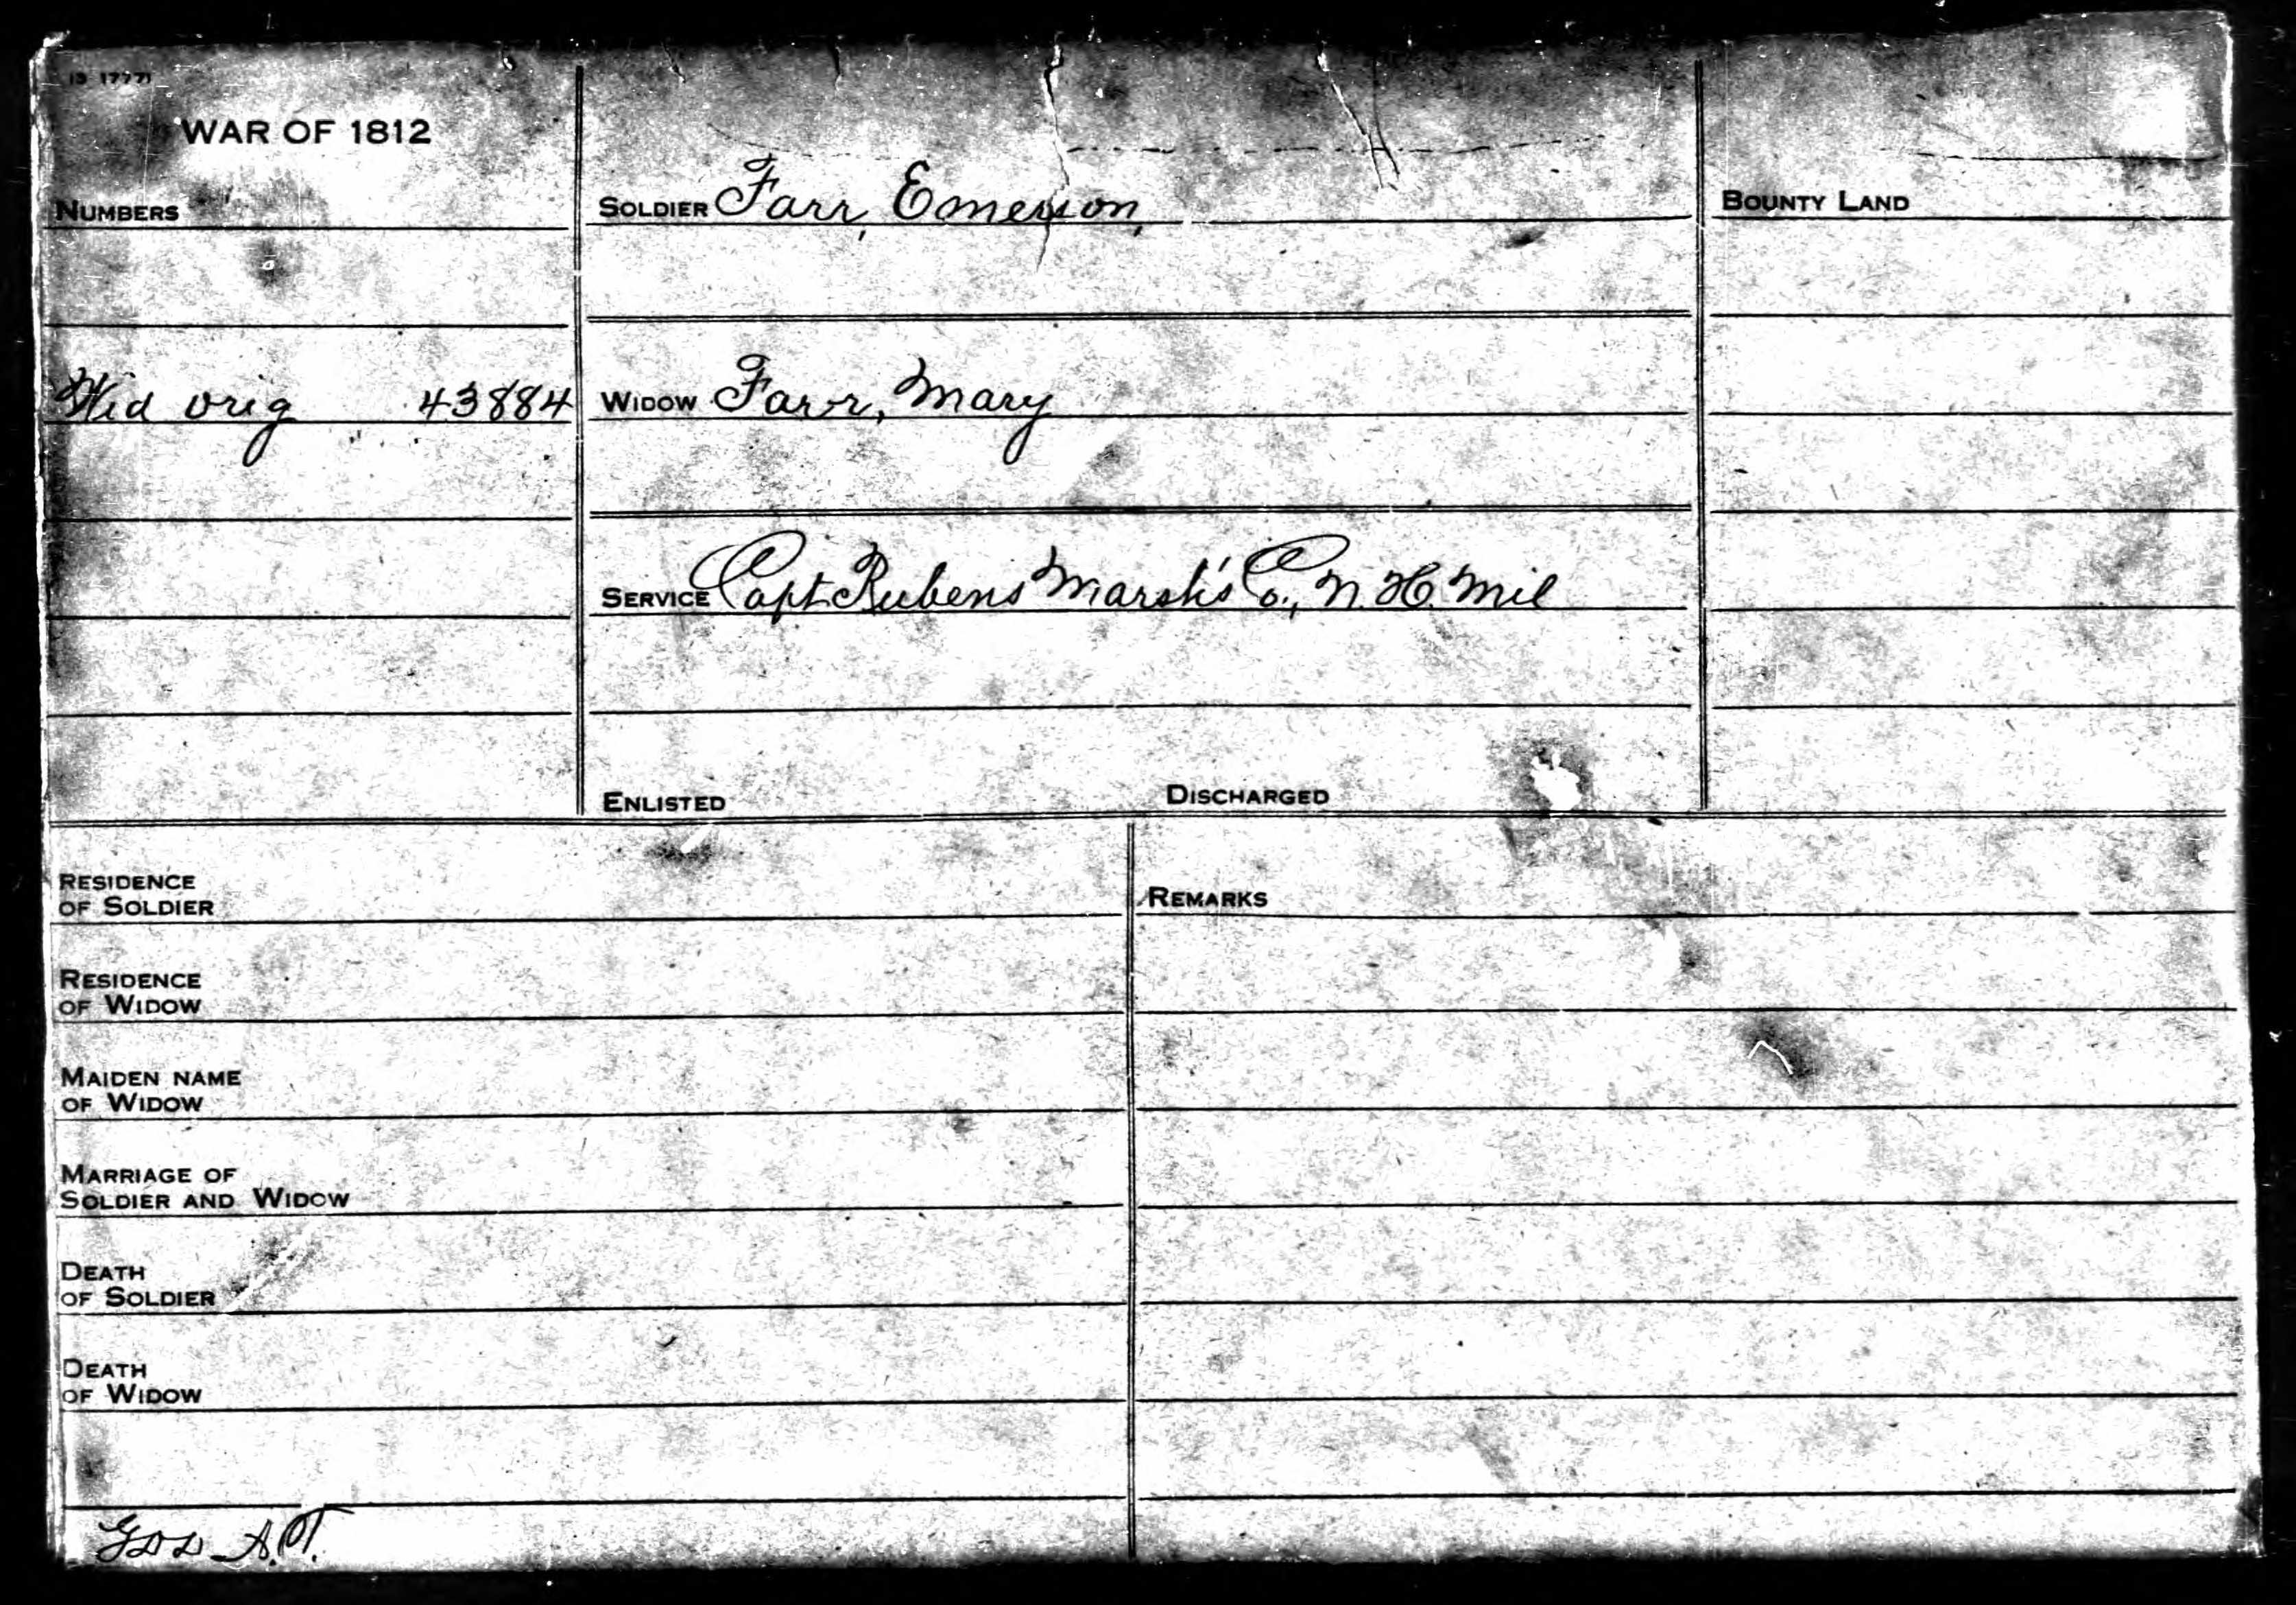 WAR OF 1812
NUMBERS
SOLDIER Farr, Emerson,
BOUNTY LAND
Wid orig 43884
WIDOW Farr, Mary
SERVICE Capt Rubens Marsh's Co., N. H. Mil
ENLISTED DISCHARGED
RESIDENCE
OF SOLDIER
REMARKS
RESIDENCE
OF WIDOW
MAIDEN NAME
OF WIDOW
MARRIAGE OF
SOLDIER AND WIDOW
DEATH
OF SOLDIER
DEATH
OF WIDOW